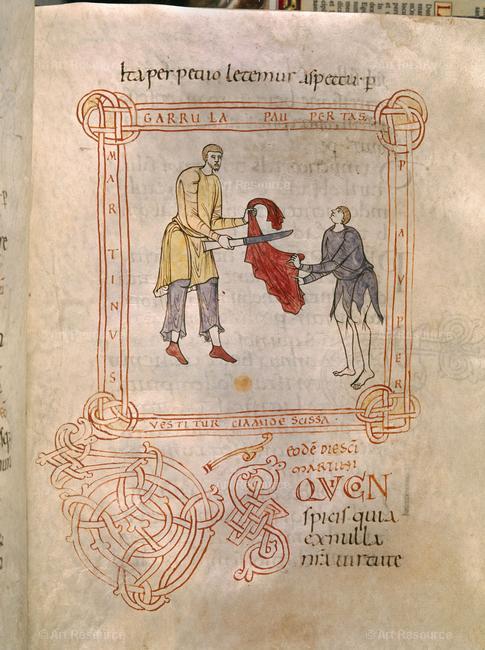 Ita per petuo letemur aspectu· p
GARRULA PAUPERTAS
MARTINUS
PAUPER
VESTITUR CLAMIDE SCISSA·
eodē die scī
MARTINI
DS QVI CON
spicis quia
ex nulla
nrā uirtute
© Art Resource
© Art Resource